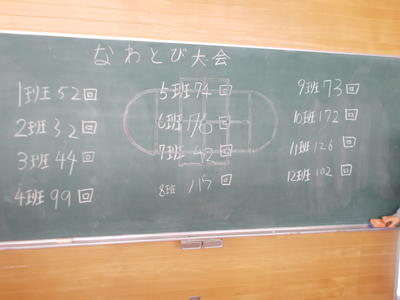 なわとび大会
1班 52回
2班 32回
3班 44回
4班 99回
5班 74回
6班 176回
7班 42回
8班 117回
9班 73回
10班 172回
11班 126回
12班 102回